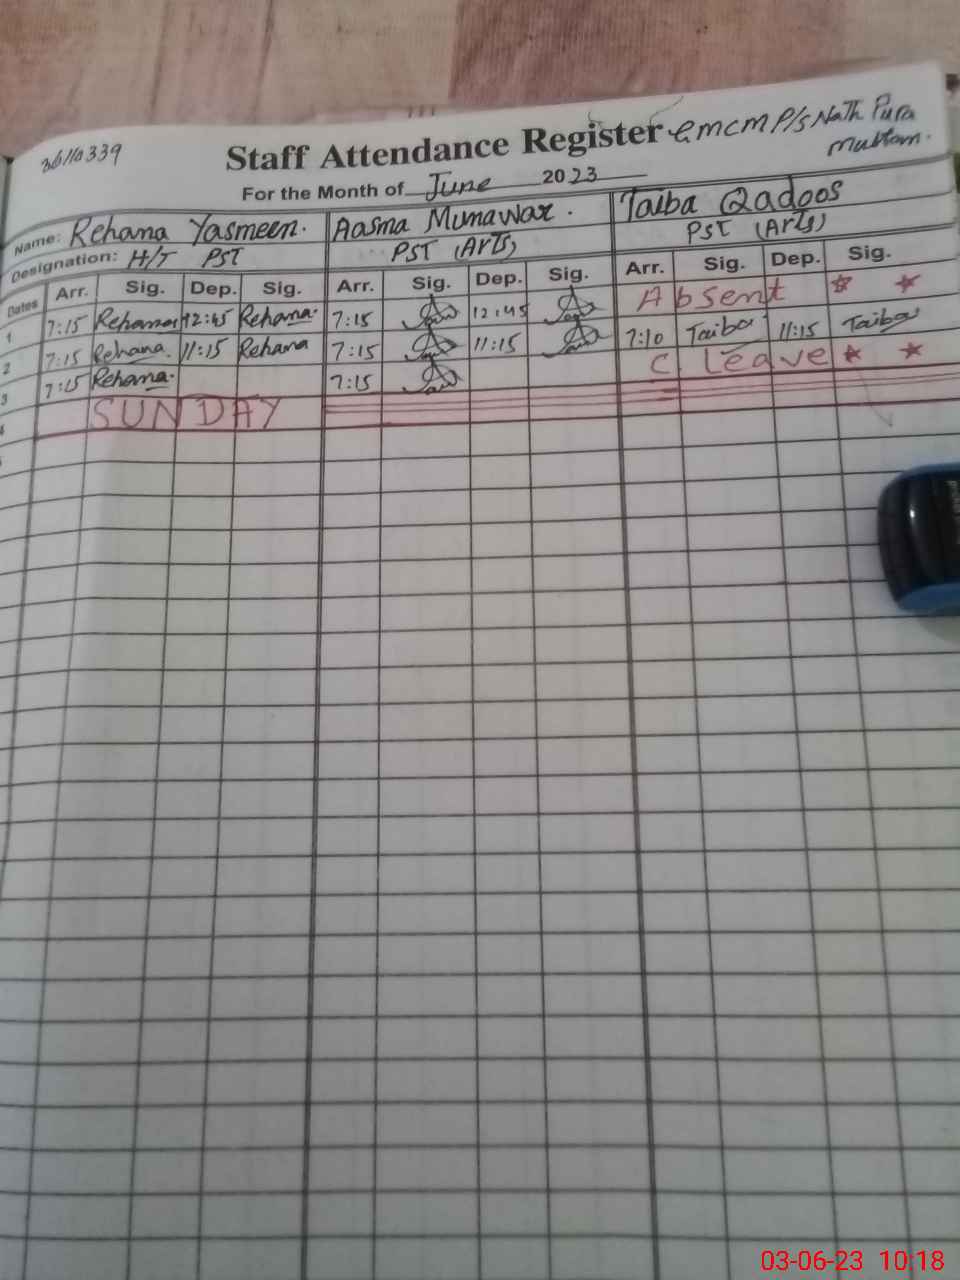 Staff Attendance Register
For the Month of June 2023
Name: Rehana Yasmeen. Aasma Munawar. Taiba Qadoos
Designation: H/T PST PST (Arts) PST (Arts)
Dates Arr. Sig. Dep. Sig. Arr. Sig. Dep. Sig. Arr. Sig. Dep. Sig.
1 7:15 Rehana 12:45 Rehana. 7:15 12:45 Absent
2 7:15 Rehana. 11:15 Rehana 7:15 11:15 7:10 Taiba 11:15 Taiba
3 7:15 Rehana. 7:15 C. leave
4 SUNDAY
03-06-23 10:18